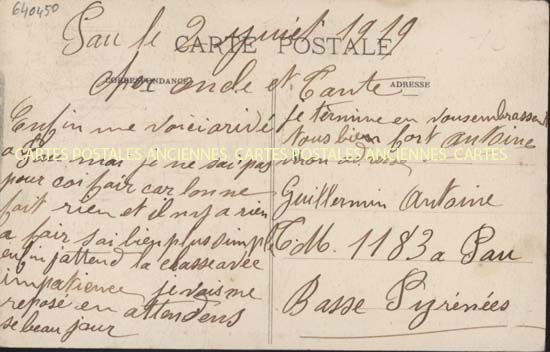 640450
Pau le 2 juillet 1919
CARTE POSTALE
CORRESPONDANCE
ADRESSE
Cher oncle et Tante
Enfin me voici arivé
a Pau mai je ne sai pas
pour coi fair car lonne
fait rien et il ny a rien
a fair sai bien plus simple
enfin jattend la classe avec
impatience je vais me
reposé en attendens
se beau jour
je termine en vousembrassant
tous bien fort Antoine
mon adresse
CARTES POSTALES ANCIENNES CARTES POSTALES ANCIENNES CARTES
Guillermin Antoine
1183 a Pau
Basse Pyrénées